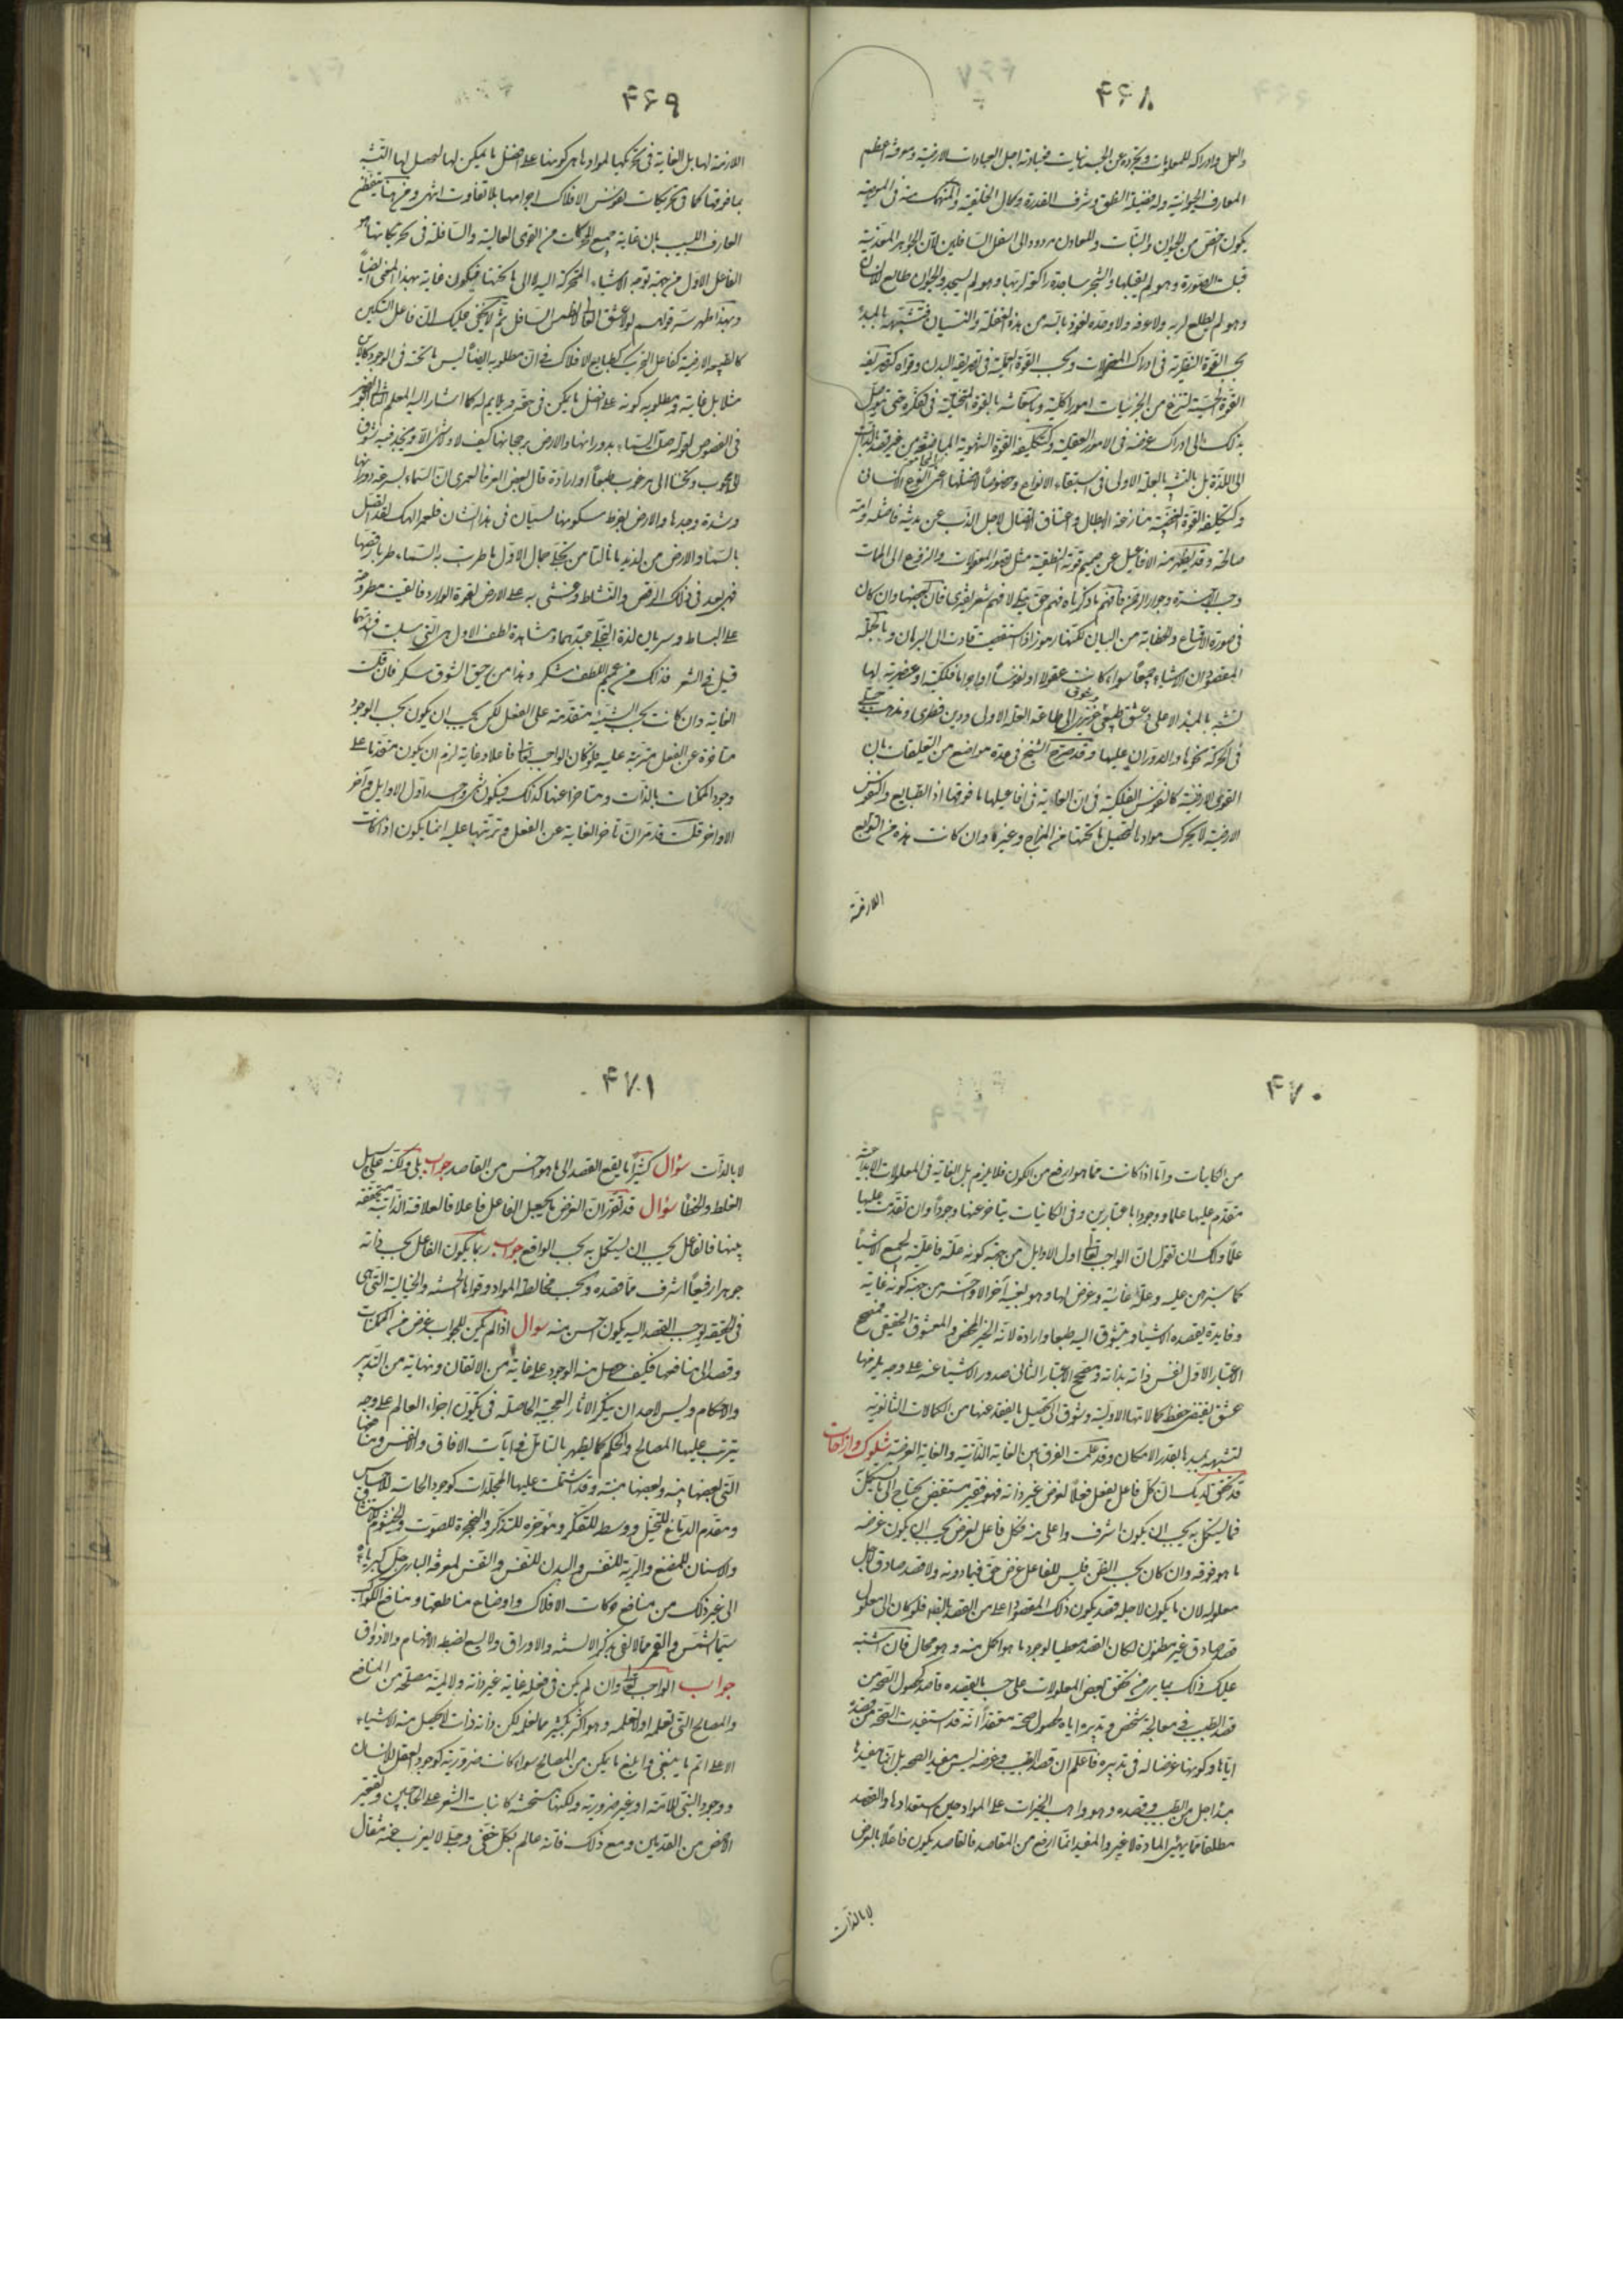 ۴۶۸
والعمل وادراكه للمعلومات وتجرده عن الجسمانيات فعبادته اجل العبادات الارضية ومعرفته اعظم
المعارف الحيوانية وله فضيلة النطق وشرف القدرة وكمال الخلقة والمنهمك منه في
يكون اخس من الحيوان والنبات والمعادن مردود الى اسفل السافلين لان الجواهر المعدنية
قبلت الصورة وهو لم يقبلها والشجر ساجدة راكعة لربها وهو لم يسجد والحيوان طايع للانسان
وهو لم يطع لربه ولا عرفه ولا وحده نعوذ بالله من هذه الغفلة والنسيان فتشبهه بالمبدأ
بحسب القوة النظرية في ادراك المعقولات وبحسب القوة العملية في تصريفه البدن وقواه كتصريفه
القوة الحسية لتنتزع من الجزئيات امورا كلية وباستعانته بالقوة المتخيلة في تفكره حتى يتوصل
بذلك الى ادراك غرضه في الامور العقلية وكتكليفه القوة الشهوية المباضعة من غير قصد بالذات
الى اللذة بل بالتشبه بالعلة الاولى في استبقاء الانواع وخصوصا افضلها اعني النوع الانسان
وكتكليفه القوة الغضبية منازعة الابطال واعتناق القتال لاجل الذب عن مدينة فاضلة وامة
صالحة وقد يظهر منه الافاعيل عن صميم قوته النطقية مثل تصور المعقولات والنزوع الى المهمات
وحب الآخرة وجوار الرحمن فافهم ما ذكرناه فهم حق يقيني لا فهم شعر تقشري فان
في صورة الاقناع والخطابة من البيان لكنها رموز اذا استقصيت قادت الى البرهان وبالجملة
المقصود ان الاشياء جميعا سواء كانت عقولا او نفوسا او اجراما فلكية او عنصرية لها
تشبه بالمبدأ الاعلى وعشق طبيعي وشوق غريزي الى طاعة العلة الاولى ودين فطري ومذهب جبلي
في الحركة نحوها والدوران عليها وقد صرح الشيخ في عدة مواضع من التعليقات بان
القوى الارضية كالنفوس الفلكية في ان الغاية في افاعيلها ما فوقها اذ الطبايع والنفوس
الارضية لا تحرك موادها لتحصيل ما تحتها من المزاج وغيره وان كانت هذه من التوابع
اللازمة
۴۶۹
اللازمة لها بل الغاية في تحريكها لموادها هي كونها على افضل ما يمكن لها ليحصل لها التشبه
بما فوقها كما في تحريكات نفوس الافلاك اجرامها بلا تفاوت انتهى ومن هنا يتفطن
العارف اللبيب بان غاية جميع المحركات من القوى العالية والسافلة في تحريكاتها هو
الفاعل الاول من جهة توجه الاشياء المتحركة اليه لا الى ما تحتها فيكون غاية بهذا المعنى ايضا
وبهذا ظهر سر قولهم لولا عشق العالي لانطمس السافل ثم لا يخفى عليك ان فاعل التسكين
كالطبيعة الارضية كفاعل التحريك كطبايع الافلاك في ان مطلوبه ايضا ليس ما تحته في الوجود كالاين
مثلا بل غايته ومطلوبه كونه على افضل ما يمكن في حقه ويلايم له كما اشار اليه المعلم الثاني ابو نصر
في الفصوص لقوله صلت السماء بدورانها والارض برجحانها كيف لا وكل شئ الا ويجد في نفسه شوقا
الى محبوب ويحن الى مرغوب طبعا او ارادة قال بعض العرفا لعمري ان السماء لسرعة دورانها
وشدة وجدها والارض لفرط سكونها لسيان في هذا الشان فلعمر الهك لقد اتصل
بالسماء والارض من لذيذ ما نالتا من تجلي جمال الاول ما طربت به السماء طربا رقصها
فهي بعد في ذلك الرقص والنشاط وغشي به على الارض لقوة الوارد فالقيت مطروحة
على البساط وسريان لذة التجلي عبدهما ومشاهدة لطف الاول هي التي سلبت افئدتهما
قيل في الشعر فذلك من عميم اللطف شكر وهذا من رحيق الشوق سكر فان قلت
الغاية وان كانت بحسب الشيئية متقدمة على الفعل لكن يجب ان يكون بحسب الوجود
متاخرة عن الفعل مترتبة عليه فلو كان الواجب تعالى فاعلا وغاية لزم ان يكون متقدما على
وجود الممكنات بالذات ومتاخرا عنها كذلك فيكون شئ واحد اول الاوايل وآخر
الاواخر قلت قد مر ان تاخر الغاية عن الفعل وترتبها عليه انما يكون اذا كانت
۴۷۰
من الكاينات واما اذا كانت مما هو ارفع من الكون فلا يلزم بل الغاية في المعلولات الابداعية
متقدم عليها علما ووجودا باعتبارين وفي الكاينات يتاخر عنها وجودا وان تقدمت عليها
علما ولك ان تقول ان الواجب تعالى اول الاوايل من جهة كونه علة فاعلية لجميع الاشياء
كما سنبرهن عليه وعلة غائية وغرض لها وهو بعينه آخر الاواخر من جهة كونه غاية
وفايدة يقصده الاشياء ويتشوق اليه طبعا وارادة لانه الخير المحض والمعشوق الحقيقي فمصحح
الاعتبار الاول نفس ذاته بذاته ومصحح الاعتبار الثاني صدور الاشياء عنه على وجه يلزمها
عشق يقتضي حفظ كمالاتها الاولية وشوق الى تحصيل ما يفقد عنها من الكمالات الثانوية
لتشبهه بمبدئها بقدر الامكان وقد علمت الفرق بين الغاية الذاتية والغاية العرضية شكوك وازاحات
قد تحقق لديك ان كل فاعل يفعل فعلا لغرض غير ذاته فهو فقير مستفيض يحتاج الى ما يستكمل
فما يستكمل به يجب ان يكون اشرف واعلى منه فكل فاعل لغرض يجب ان يكون غرضه
ما هو فوقه وان كان بحسب الظن فليس للفاعل غرض حق فيما دونه ولا قصد صادق لاجل
معلوله لان ما يكون لاجله قصد يكون ذلك المقصود اعلى من القصد بالضرورة فلو كان الى معلول
قصد صادق غير مظنون لكان القصد معطيا لوجود ما هو اكمل منه وهو محال فان اشتبه
عليك ذلك بما يرى من تحقق بعض المعلولات على حسب ما يقصده قاصد كحصول الصحة من
قصد الطبيب في معالجة شخص وتدبيره اياه لحصول صحته معتقدا انه قد استفيدت الصحة من قصده
اياها وكونها غرضا له في تدبيره فاعلم ان قصد الطبيب وغرضه ليس مفيد الصحة بل انما مفيدها
مبدأ اجل من الطبيب وقصده وهو واهب الخيرات على المواد حين استعدادها والقصد
مطلقا مما يهيئ المادة لا غير والمفيد انما ارفع من المقاصد فالقاصد يكون فاعلا بالعرض
لا بالذات
۴۷۱
لا بالذات سؤال كثيرا ما يقع القصد الى ما هو اخس من القاصد جواب بلى ولكنه على سبيل
الغلط والخطأ سؤال قد تقرر ان الغرض ما يجعل الفاعل فاعلا فالعلاقة الذاتية متحققة
بينهما فالفاعل يجب ان يستكمل به بحسب الواقع جواب ربما يكون الفاعل بحسب ذاته
جوهرا رفيعا اشرف مما قصده وبحسب مخالطة المواد وقواها الحسية والخيالية التي هي
في الحقيقة يوجب القصد اليه يكون اخس منه سؤال اذا لم يكن للواجب غرض في الممكنات
وقصد الى منافعها فكيف حصل منه الوجود على غاية من الاتقان ونهاية من التدبير
والاحكام وليس لاحد ان ينكر الاثار العجيبة الحاصلة في تكون اجزاء العالم على وجه
تترتب عليها المصالح والحكم كما يظهر بالتامل في آيات الافاق والانفس ومنافعها
التي بعضها بينة وبعضها مبينة وقد اشتملت عليها المجلدات كوجود الحاسة للاحساس
ومقدم الدماغ للتخيل ووسطه للتفكر ومؤخره للتذكر والحنجرة للصوت والخيشوم لاستنشاق
والاسنان للمضغ والرية للتنفس والبدن للنفس والنفس لمعرفة الباري جل كبرياؤه
الى غير ذلك من منافع حركات الافلاك واوضاع مناطقها ومنافع الكواكب
سيما الشمس والقمر مما لا تفي بذكره الالسنة والاوراق ولا يسع لضبطه الافهام والاذواق
جواب الواجب تعالى وان لم يكن في فعله غاية غير ذاته ولا لمية مصلحة من المنافع
والمصالح التي نعلمه او لا نعلمه وهو اكثر بكثير مما نعلمه لكن ذاته ذات لا تحصل منه الاشياء
الا على اتم ما ينبغي وابلغ ما يمكن من المصالح سواء كانت ضرورية كوجود العقل للانسان
ووجود النبي للامة او غير ضرورية ولكنها مستحسنة كانبات الشعر على الحاجبين وتقعير
الاخمص من القدمين ومع ذلك فانه عالم بكل خفي وجلي لا يعزب عنه مثقال